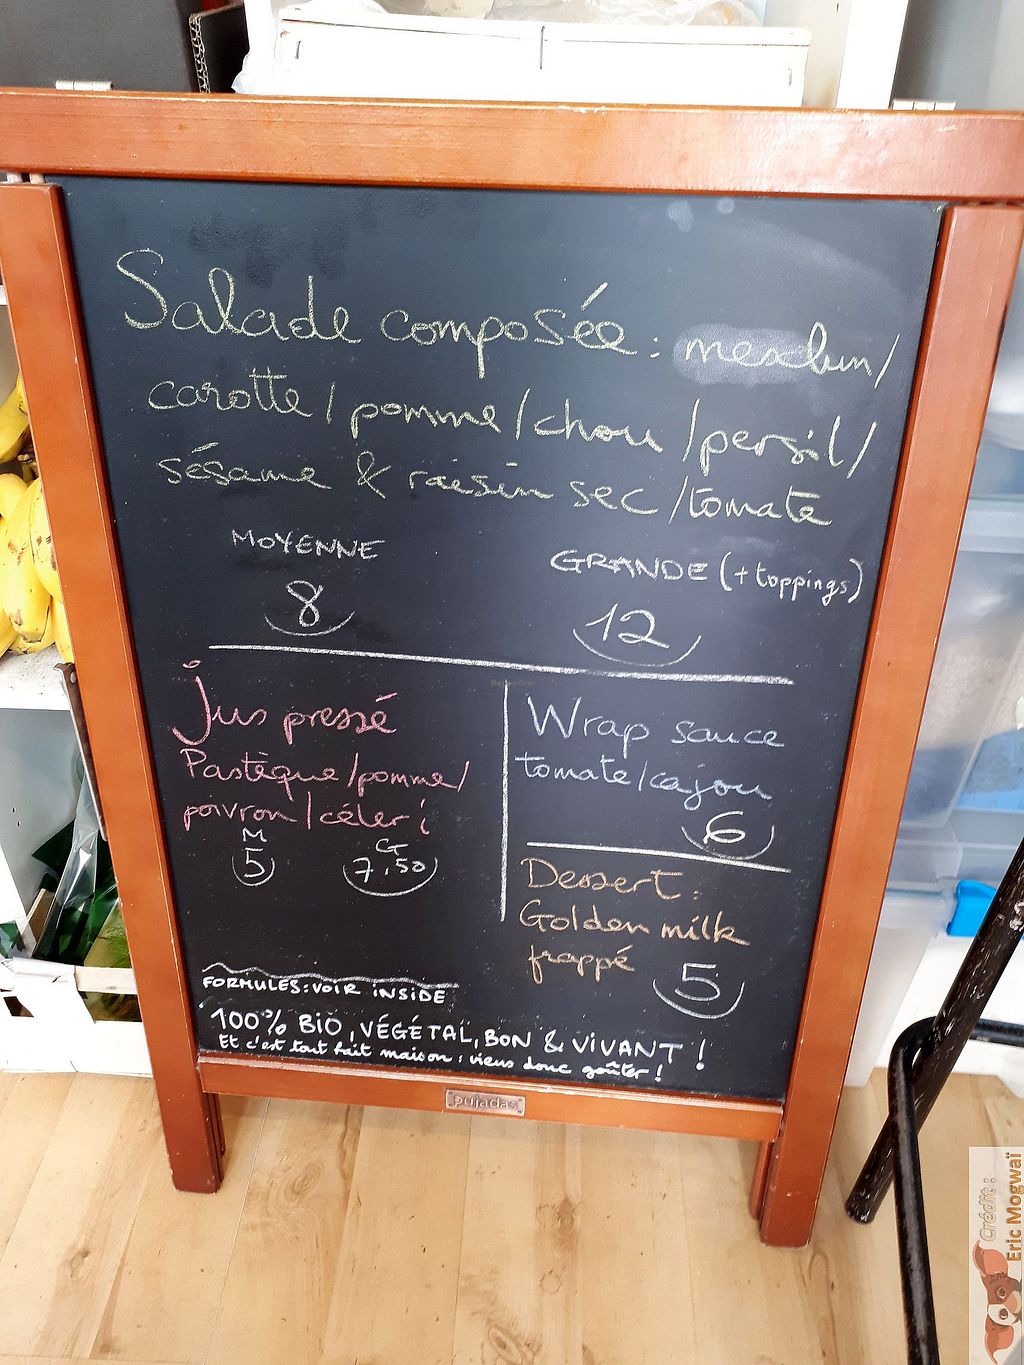 Salade composée : mesclun/
carotte / pomme / chou / persil /
sésame & raisin sec / tomate
MOYENNE
8
GRANDE (+ toppings)
12
Jus pressé
Pastèque / pomme /
poivron / céleri
M
5
G
7,50
Wrap sauce
tomate / cajou
6
Dessert :
Golden milk
frappé
5
FORMULES : VOIR INSIDE
100% BIO, VÉGÉTAL, BON & VIVANT !
Et c'est tout fait maison : viens donc goûter !
pujadas
Crédit :
Eric Mogwaï